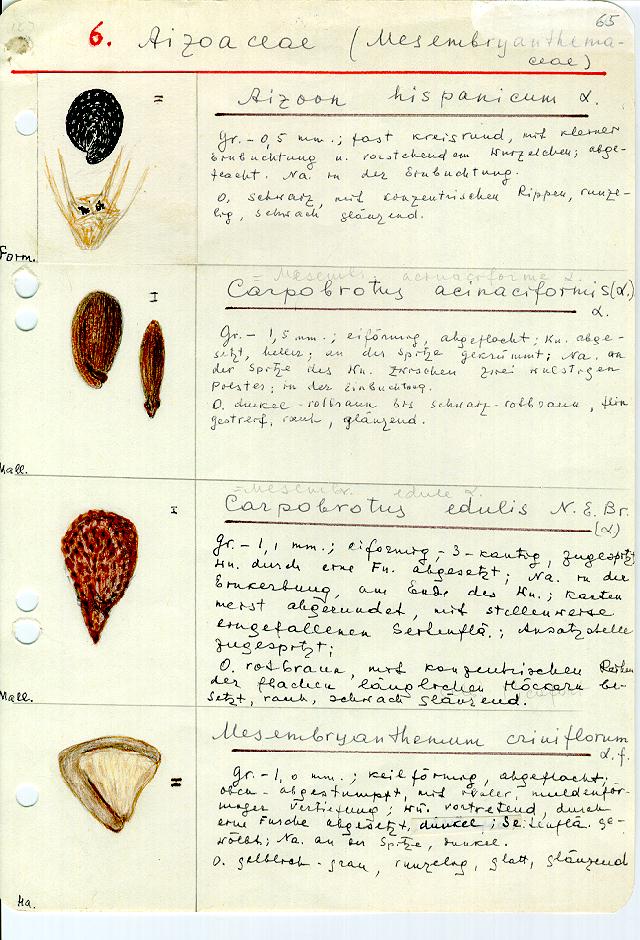 65
6. Aizoaceae (Mesembryanthema-
ceae)
=
Aizoon hispanicum L.
Gr. - 0,5 mm.; fast kreisrund, mit kleiner
Einbuchtung u. vorstehendem Würzelchen; abge-
flacht. Na. in der Einbuchtung.
O. schwarz, mit konzentrischen Rippen, runze-
lig, schwach glänzend.
Form.
= Mesembr. acinaciforme L.
I
Carpobrotus acinaciformis (L.)
L.
Gr. - 1,5 mm.; eiförmig, abgeflacht; Wu. abge-
setzt, heller; an der Spitze gekrümmt; Na. an
der Spitze des Wu. zwischen zwei wulstigen
Polster; in der Einbuchtung.
O. dunkel-rotbraun bis schwarz-rotbraun, fein
gestreift, rauh, glänzend.
Mall.
= Mesembr. edule L.
I
Carpobrotus edulis N. E. Br.
(L)
Gr. - 1,1 mm.; eiförmig, - 3-kantig, zugespitzt
Wu. durch eine Fu. abgesetzt; Na. in der
Einkerbung, am Ende des Wu.; Kanten
meist abgerundet, mit stellenweise
eingefallenen Seitenflä.; Ansatzstelle
zugespitzt;
O. rotbraun, mit konzentrischen Reihen
der flachen länglichen Höckern be-
setzt, rauh, schwach glänzend.
Mall.
=
Mesembryanthemum criniflorum
L. f.
Gr. - 1,0 mm.; keilförmig, abgeflacht;
oben abgestumpft, mit ovaler, muldenför-
miger Vertiefung; Wu. vortretend, durch
eine Furche abgesetzt, dunkel; Seitenflä. ge-
wölbt; Na. an der Spitze, dunkel.
O. gelblich-grau, runzelig, glatt, glänzend
Ma.